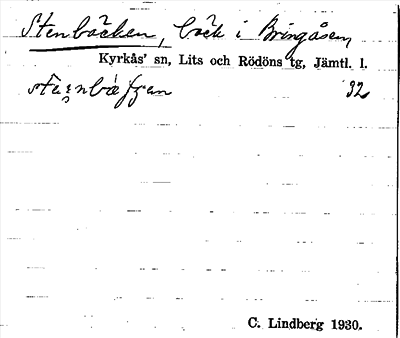 Stenbäcken, bäck i Bringåsen,
Kyrkås' sn, Lits och Rödöns tg, Jämtl. l.
32
C. Lindberg 1930.